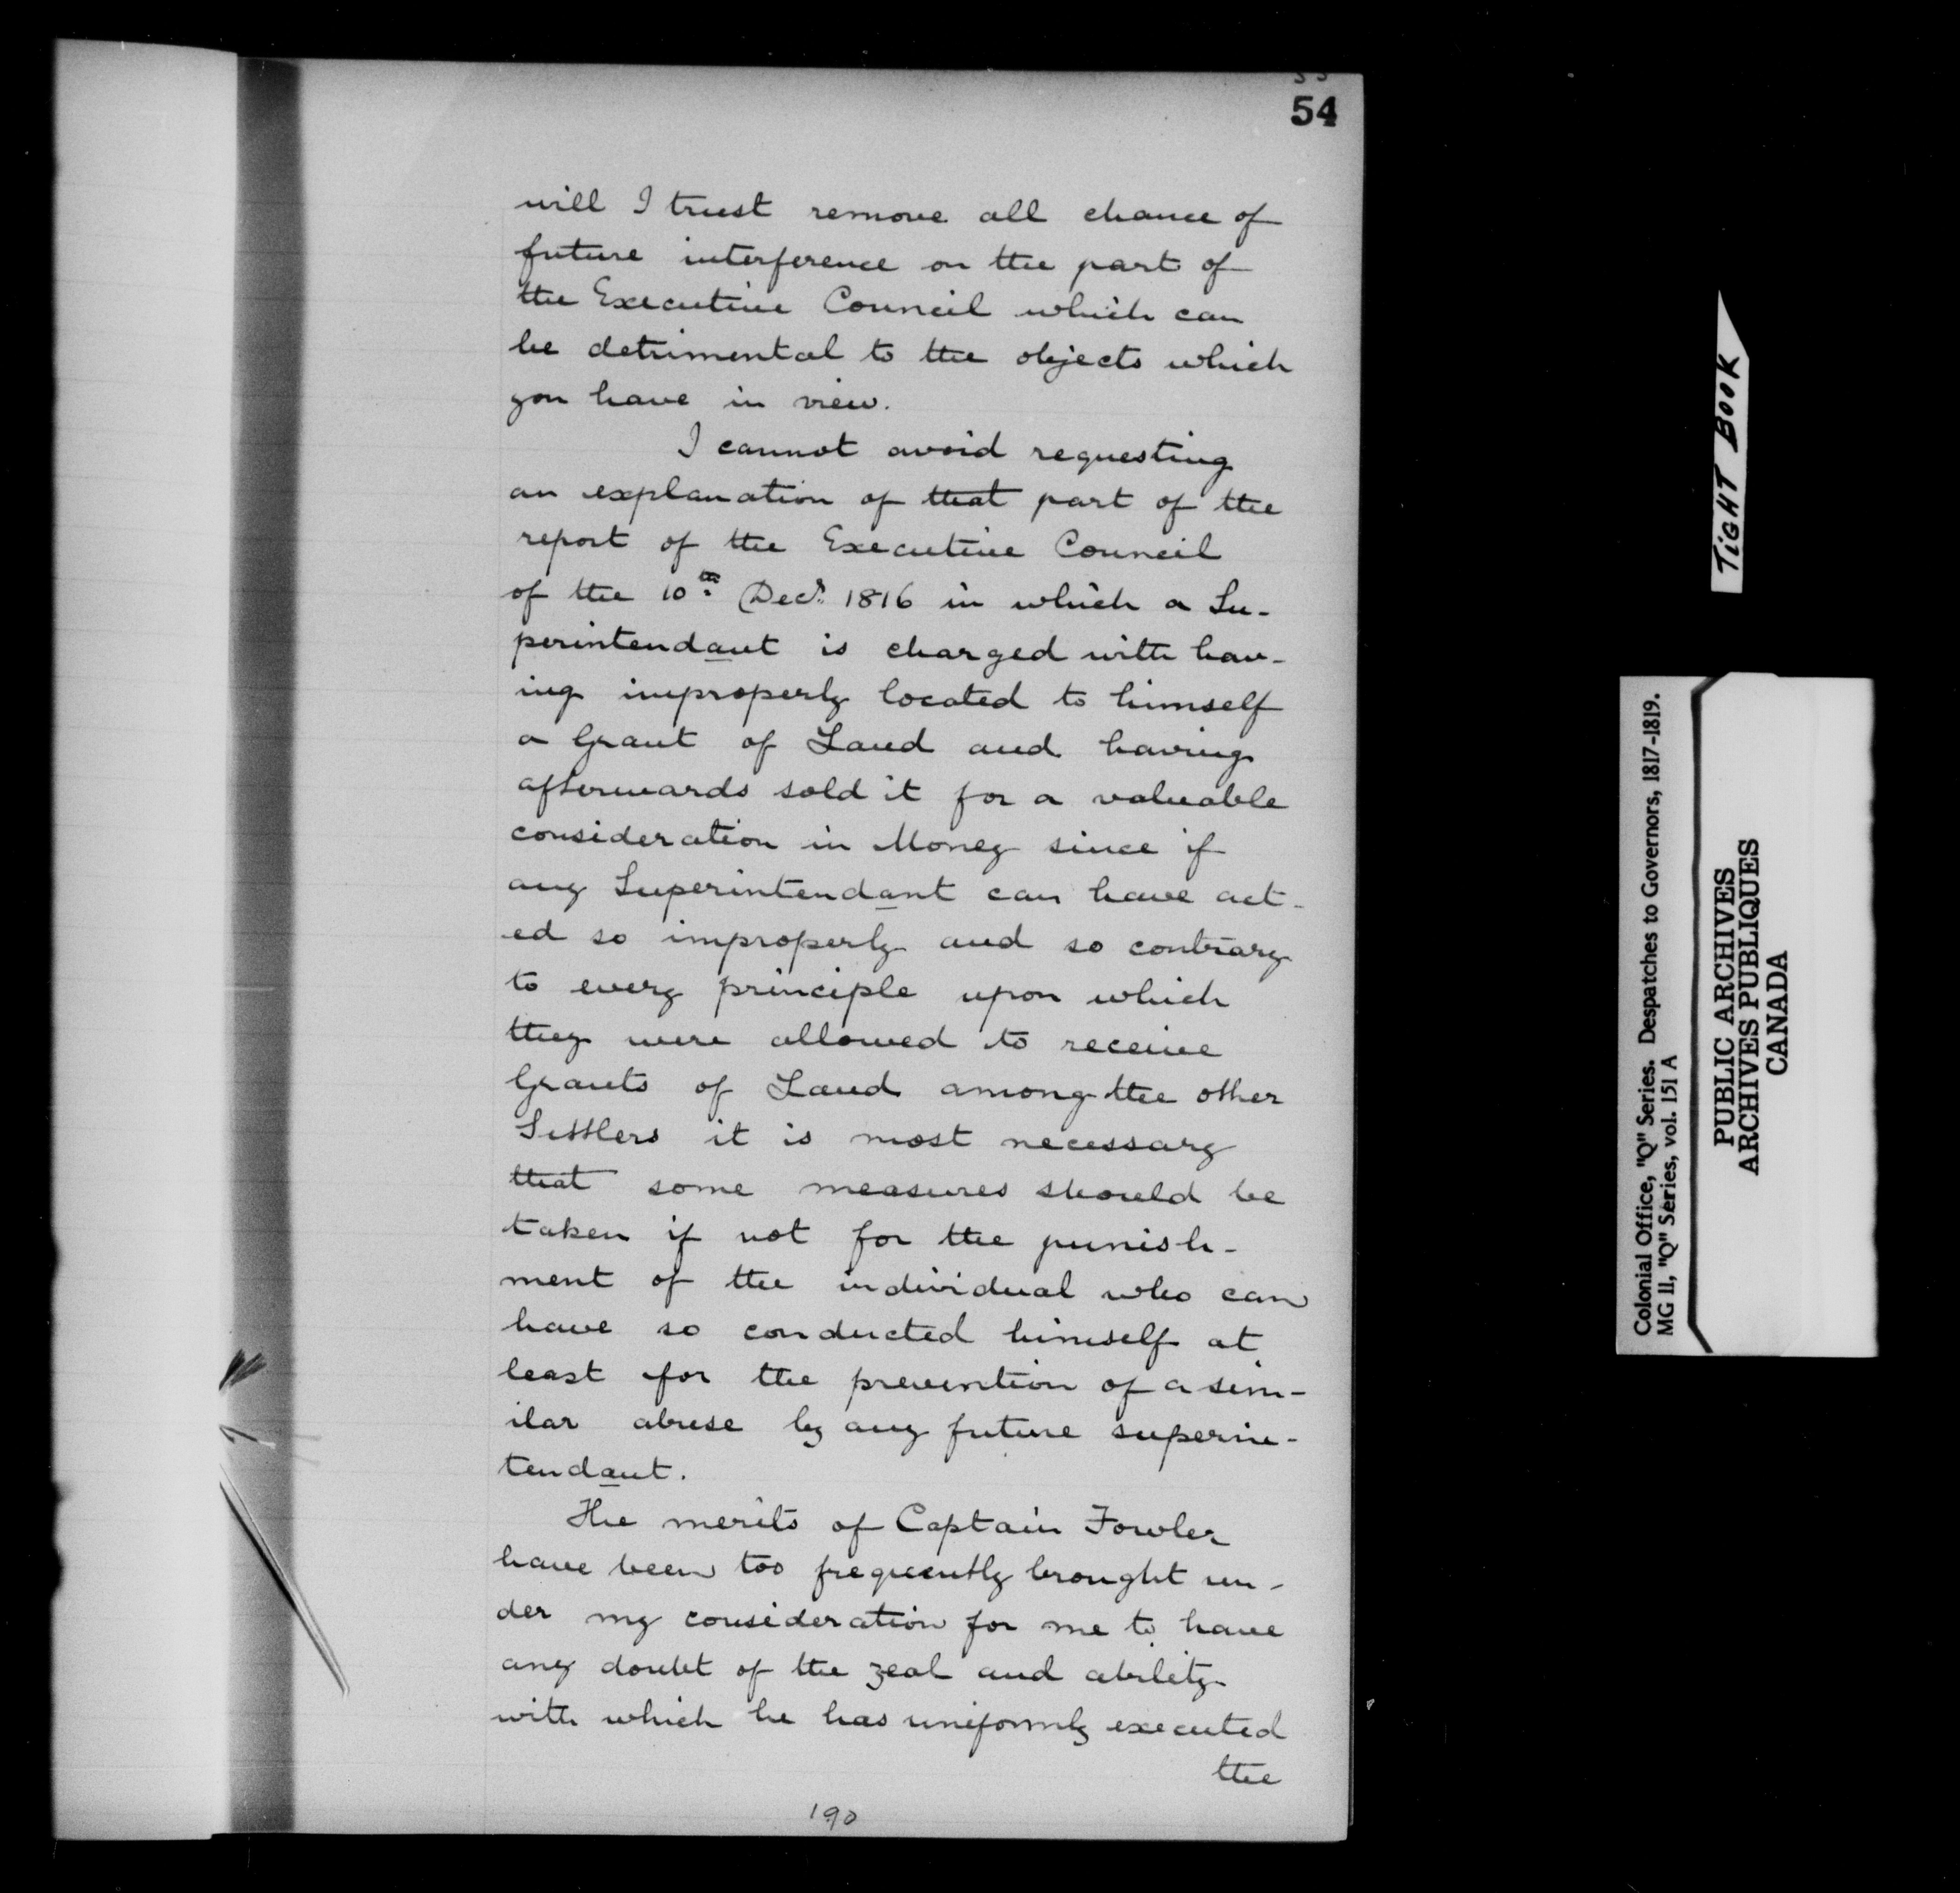 54
will I trust remove all chance of
future interference on the part of
the Executive Council which can
be detrimental to the objects which
you have in view.
I cannot avoid requesting
an explanation of that part of the
report of the Executive Council
of the 10th Decr. 1816 in which a Su-
perintendant is charged with hav-
ing improperly located to himself
a Grant of Land and having
afterwards sold it for a valuable
consideration in Money since if
any Superintendant can have act-
ed so improperly and so contrary
to every principle upon which
they were allowed to receive
Grants of Land among the other
Settlers it is most necessary
that some measures should be
taken if not for the punish-
ment of the individual who can
have so conducted himself at
least for the prevention of a sim-
ilar abuse by any future superin-
tendant.
The merits of Captain Fowler
have been too frequently brought un-
der my consideration for me to have
any doubt of the zeal and ability
with which he has uniformly executed
the
190
TIGHT BOOK
Colonial Office, "Q" Series. Despatches to Governors, 1817-1819.
MG 11, "Q" Series, vol. 151 A
PUBLIC ARCHIVES
ARCHIVES PUBLIQUES
CANADA